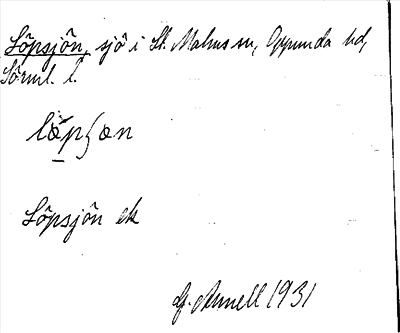 Löpsjön, sjö i St. Malms sn, Oppunda hd,
Sörml. l.
löpʃөn
Löpsjön ek
1931